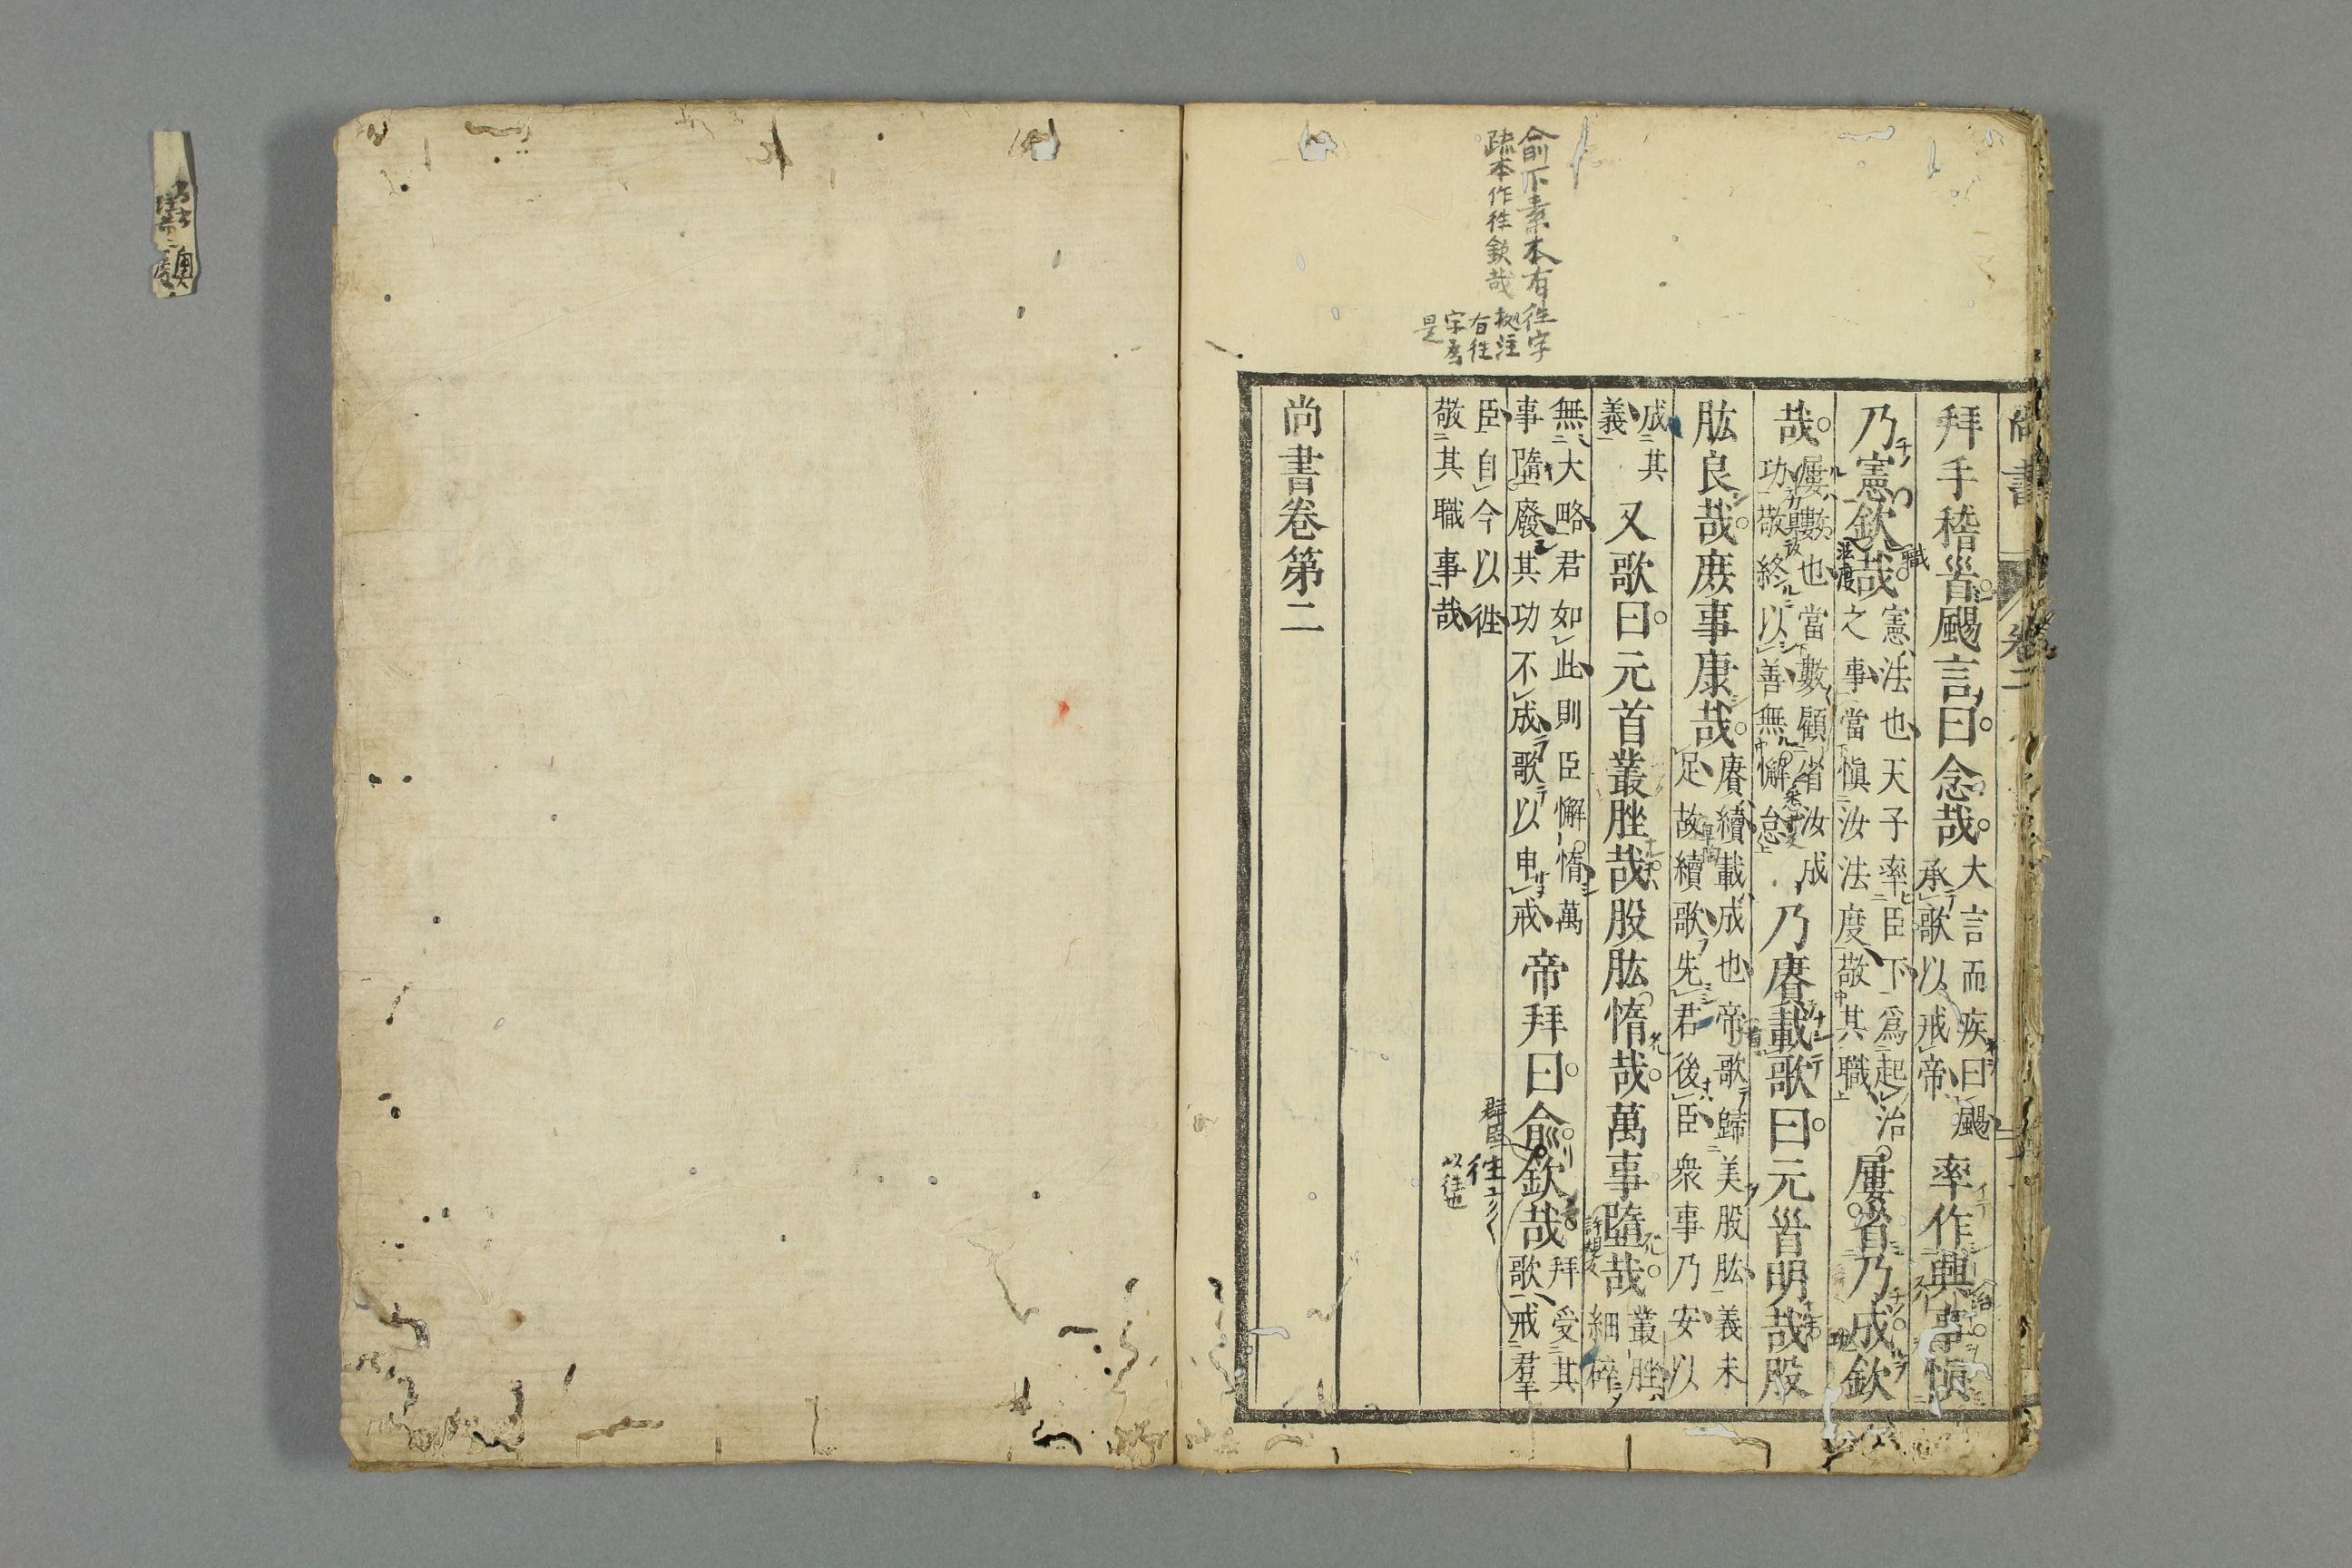 俞下素本有徃字
疏本作徃欽哉
拠注
有徃
字為
是
尚書 卷二
拜手稽𩠐颺言曰念哉
大言而疾曰颺
承歌以戒帝
率作興事愼
乃憲欽哉
憲法也天子率臣下爲起治
之事當愼汝法度敬其職
屢省乃成欽
哉
屢數也當數顧省汝成
功敬終以善無懈怠
乃賡載歌曰元𩠐明哉股
肱良哉庶事康哉
賡續載成也帝歌歸美股肱義未
足故續歌先君後臣衆事乃安以
成其
義
又歌曰元首叢脞哉股肱惰哉萬事墮哉
叢脞細碎
無大略君如此則臣懈惰萬
事墮廢其功不成歌以申戒
帝拜曰俞欽哉
拜受其
歌戒羣
臣自今以徃
敬其職事哉
群臣
徃
以徃也
尚書卷第二